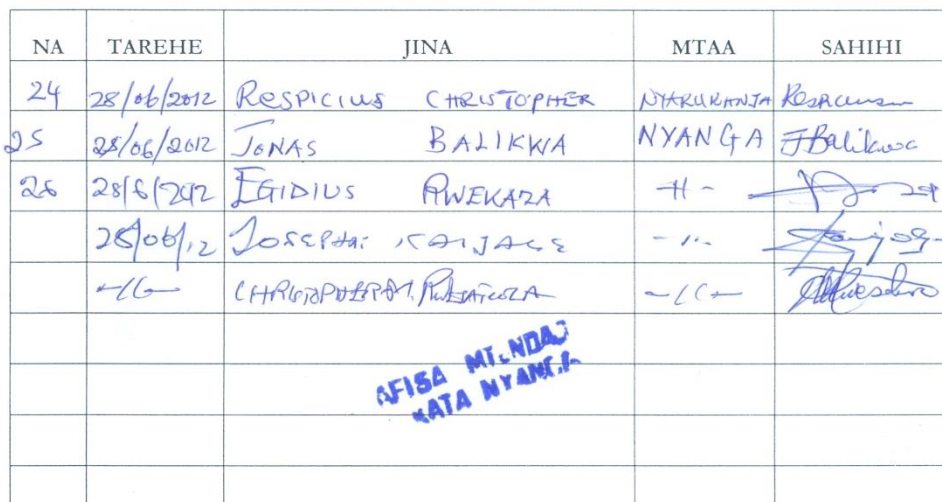 NA TAREHE JINA MTAA SAHIHI
24 28/06/2012 RESPICIUS CHRISTOPHER NYARUKANJA
25 28/06/2012 JONAS BALIKWA NYANGA JBalikwa
26 28/6/2012 EGIDIUS RWEKAZA -11-
28/06/12 KAIJAGE -11-
-11- -11-
AFISA MTENDAJI
KATA NYANGA